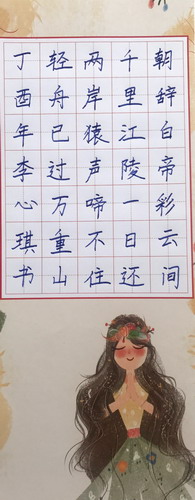 朝辞白帝彩云间
千里江陵一日还
两岸猿声啼不住
轻舟已过万重山
丁酉年李心琪书